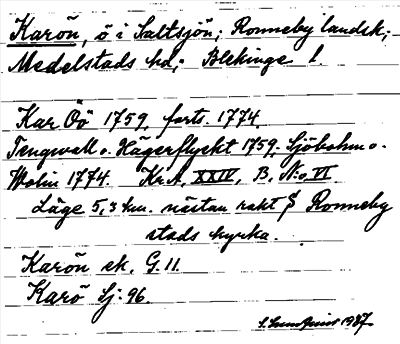 Karön, ö i Saltsjön; Ronneby landsk;
Medelstads hd; Blekinge l.
Kar Öö 1759, forts. 1774
Tengwall o. Hägerflycht 1759, Sjöbohm o.
Wolin 1774. Kr.A, XXIV, B, N:o VI
Läge 5,3 km. nästan rakt S Ronneby
stads kyrka.
Karön ek. G.11.
Karö Sj. 96.
1987